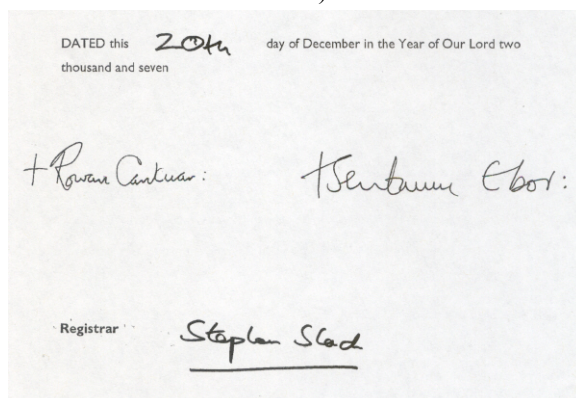 DATED this 20th day of December in the Year of Our Lord two
thousand and seven
+ Rowan Cantuar: +Sentamu Ebor:
Registrar Stephen Slack